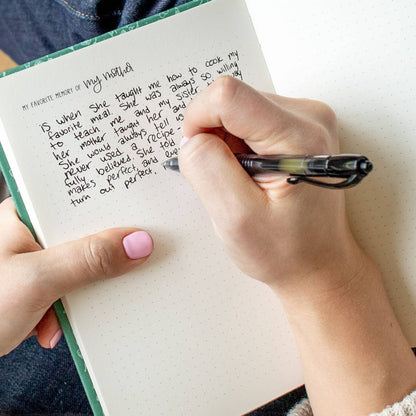 MY FAVORITE MEMORY OF my mother
Is when she taught me how to cook my
favorite meal. She was always so willing
to teach me and my sister
her mother taught her and
She would always tell us
never used a recipe
fully believed she
makes perfect and
turn out perfect.